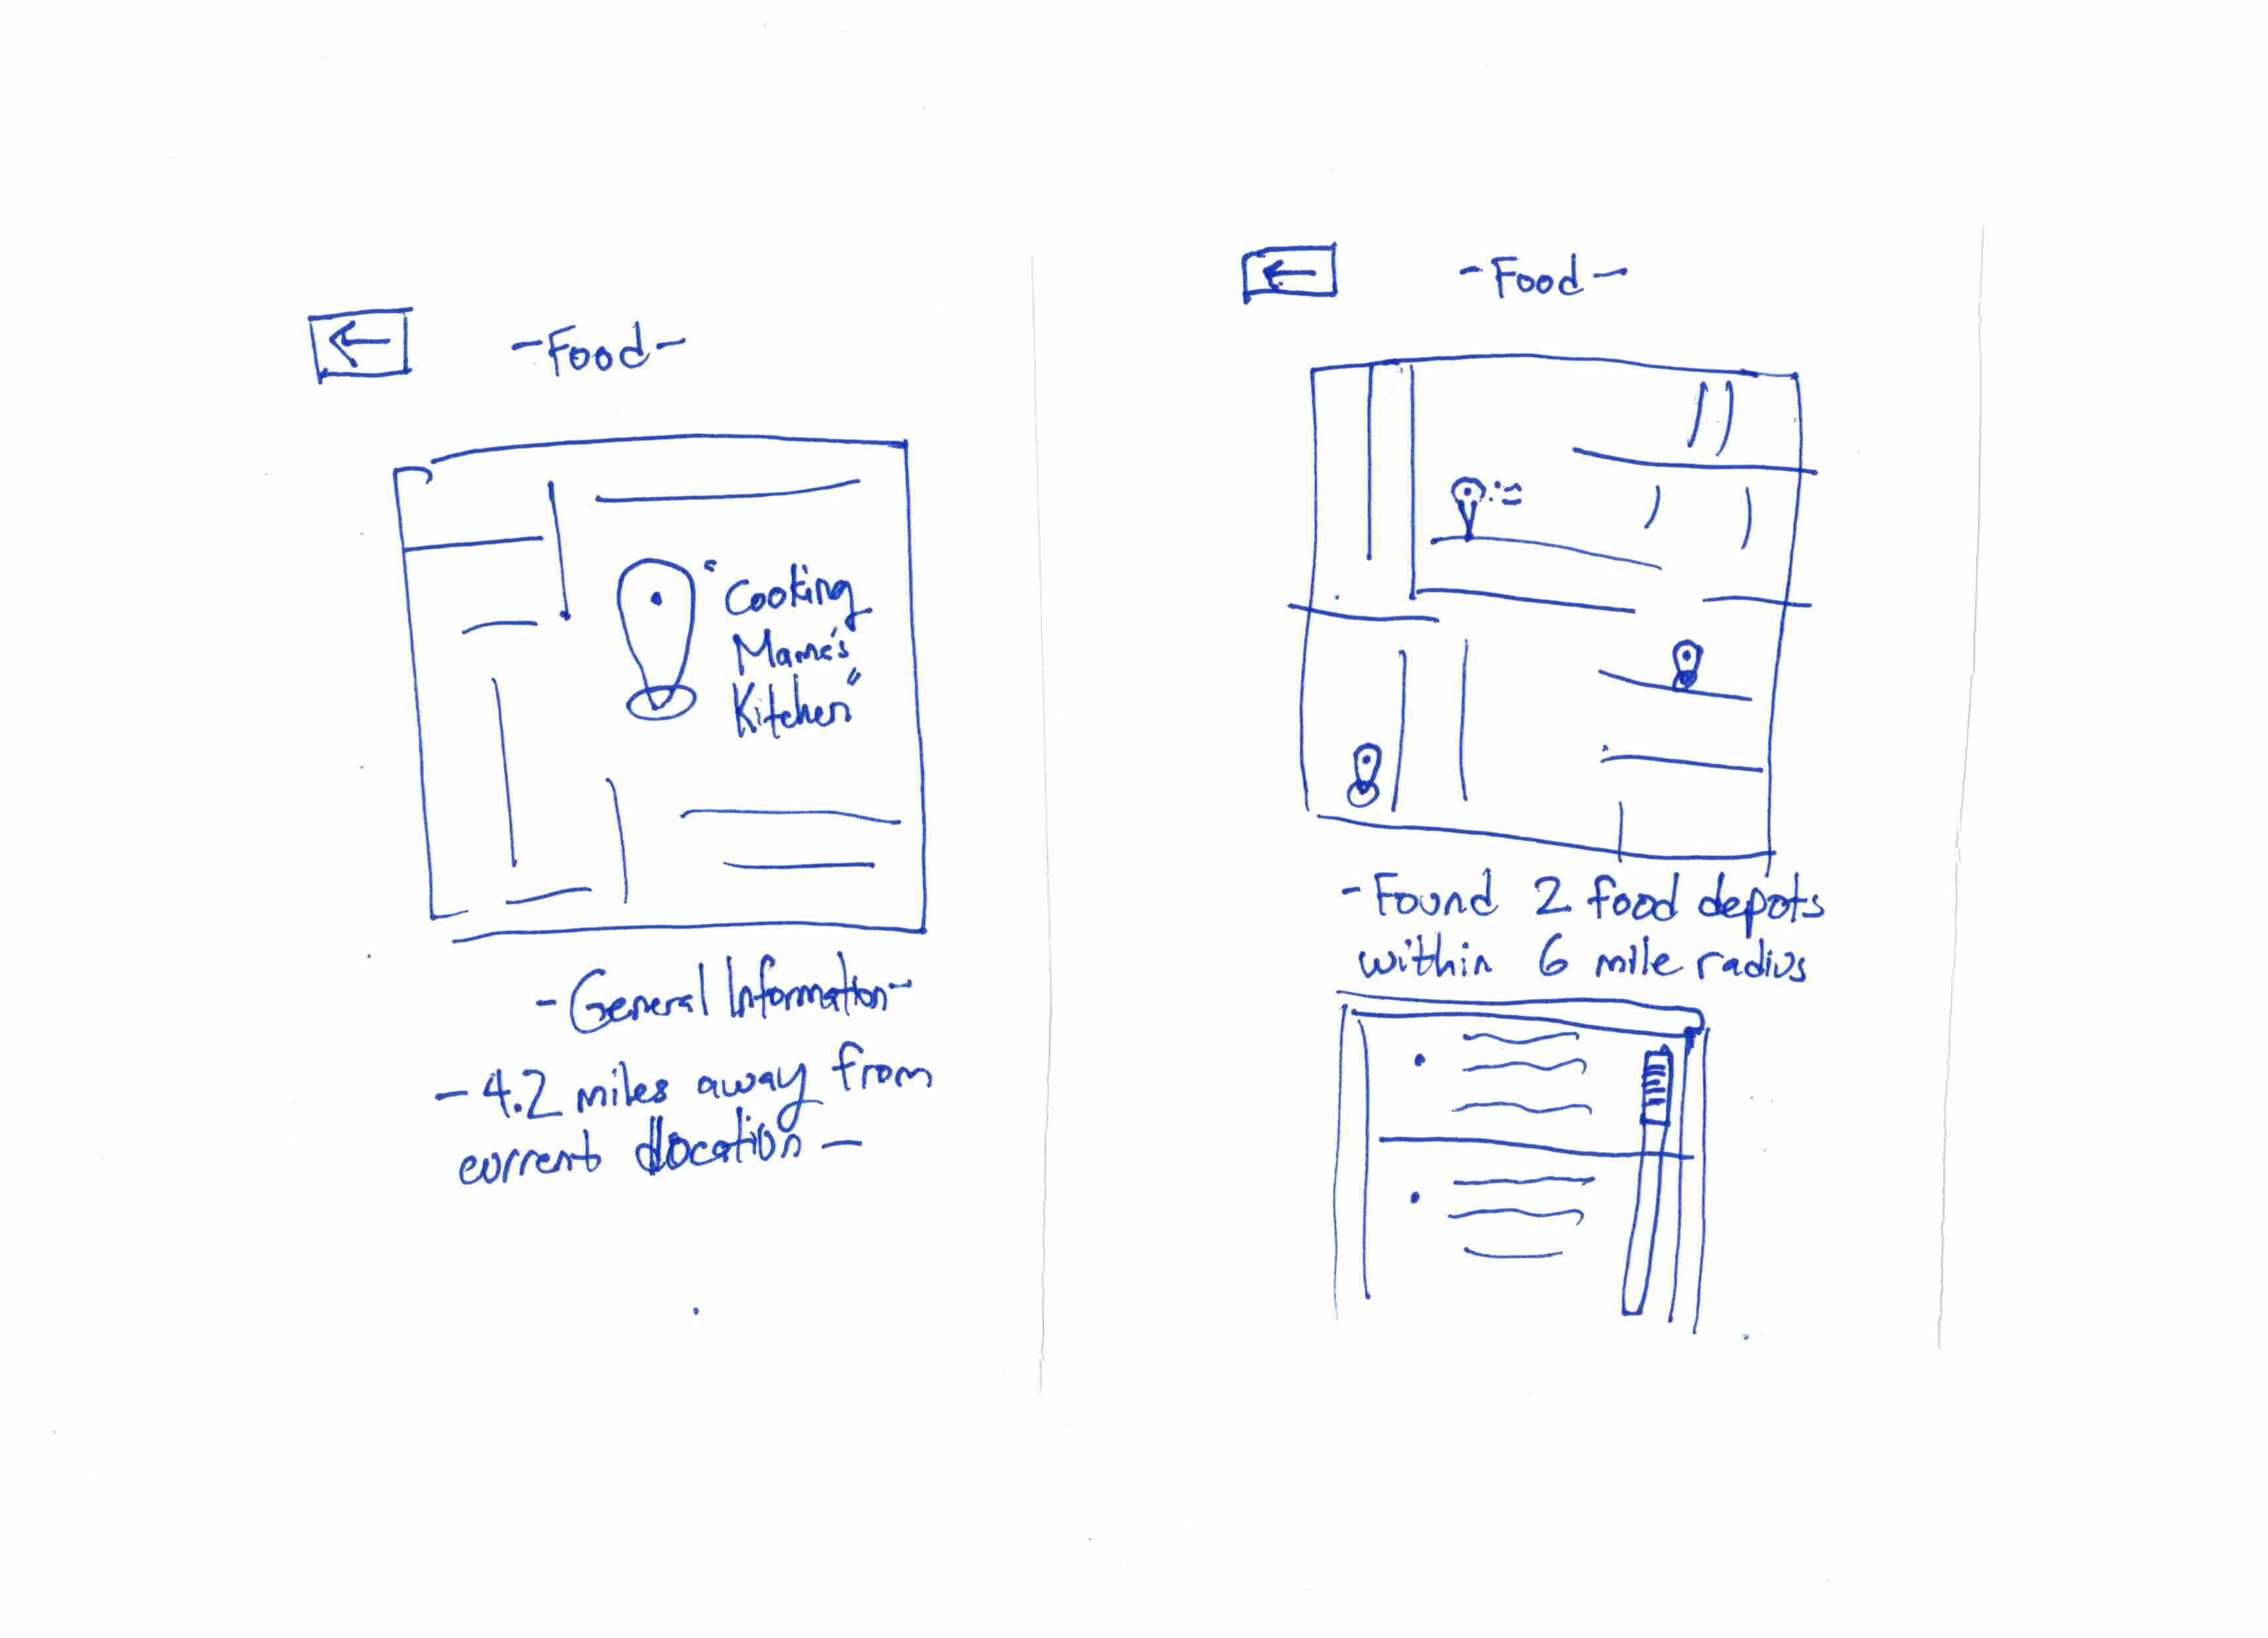 -Food-
"Cooking
Mama's
Kitchen"
-General Information-
-4.2 miles away from
current location-
-Food-
-Found 2 food depots
within 6 mile radius